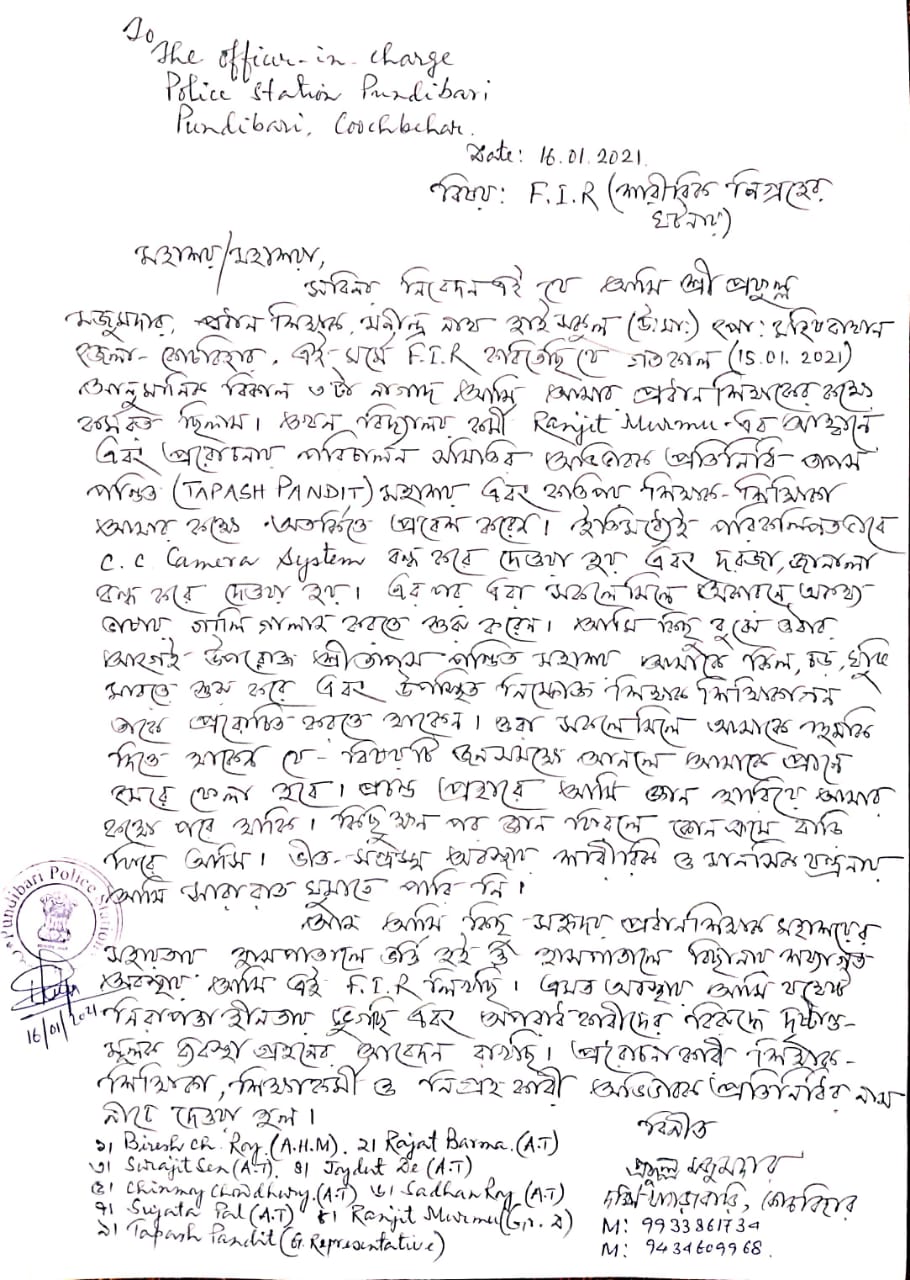 To
The officer-in-charge
Police Station Pundibari
Pundibari, Coochbehar.
Date: 16.01.2021.
বিষয়: F.I.R (শারীরিক নিগ্রহের
ঘটনায়)
মহাশয়/মহাশয়া,
সবিনয় নিবেদন এই যে আমি শ্রী প্রফুল্ল
মজুমদার, প্রধান শিক্ষক, মনীন্দ্র নাথ হাই স্কুল (উঃমাঃ) পোঃ
জেলা - কোচবিহার, এই মর্মে F.I.R করিতেছি যে গতকাল (15.01.2021)
আনুমানিক বিকাল ৩টা নাগাদ আমি আমার প্রধান শিক্ষকের কক্ষে
কর্মরত ছিলাম। তখন বিদ্যালয় কর্মী Ranjit Murmu-এর আহ্বানে
এবং প্ররোচনায় পরিচালন সমিতির অভিভাবক প্রতিনিধি তাপস
পন্ডিত (TAPASH PANDIT) মহাশয় এবং কতিপয় শিক্ষক-শিক্ষিকা
আমার কক্ষে অতর্কিতে প্রবেশ করেন। ইতিমধ্যেই পরিকল্পিতভাবে
C.C Camera System বন্ধ করে দেওয়া হয় এবং দরজা, জানালা
বন্ধ করে দেওয়া হয়। এরপর এরা সকলে মিলে অকারনে অকথ্য
ভাষায় গালিগালাজ করতে শুরু করেন। আমি কিছু বুঝে ওঠার
আগেই উপরোক্ত শ্রী তাপস পন্ডিত মহাশয় আমাকে কিল, চড়, ঘুষি
মারতে শুরু করে এবং উপস্থিত নিম্নোক্ত শিক্ষক শিক্ষিকাগন
তাকে প্ররোচিত করতে থাকেন। ওরা সকলে মিলে আমাকে হুমকি
দিতে থাকেন যে - বিষয়টি জনসমক্ষে আনলে আমাকে প্রানে
মেরে ফেলা হবে। প্রচন্ড প্রহারে আমি জ্ঞান হারিয়ে আমার
কক্ষে পরে থাকি। কিছুক্ষন পর জ্ঞান ফিরলে কোনক্রমে বাড়ি
ফিরে আসি। ভীত-সন্ত্রস্ত অবস্থায় শারীরিক ও মানসিক যন্ত্রনায়
আমি সারারাত ঘুমাতে পারি নি।
আজ আমি কিছু সহৃদয় প্রধান শিক্ষক মহাশয়ের
সহায়তায় হাসপাতালে ভর্তি হই ও হাসপাতালে বিছানায় শয্যাগত
অবস্থায় আমি এই F.I.R লিখছি। এমত অবস্থায় আমি যথেষ্ট
নিরাপত্তাহীনতায় ভুগছি এবং অপরাধকারীদের বিরুদ্ধে দৃষ্টান্ত-
মূলক ব্যবস্থা গ্রহনের আবেদন রাখছি। প্ররোচনাকারী শিক্ষক-
শিক্ষিকা, শিক্ষাকর্মী ও নিগ্রহকারী অভিভাবক প্রতিনিধির নাম
নীচে দেওয়া হল।
১। Biresh Ch. Roy (A.H.M). ২। Rajat Barma (A.T)
৩। Surajit Sen (A.T). ৪। Joydut De (A.T)
৫। Chinmoy Chowdhury (A.T) ৬। Sadhan Roy (A.T)
৭। Sujata Pal (A.T) ৮। Ranjit Murmu (Gr. D)
৯। Tapash Pandit (G. Representative)
বিনীত
প্রফুল্ল মজুমদার
কোচবিহার
M: 9933861734
M: 9434609968.
Pundibari Police Station
16/01/2021